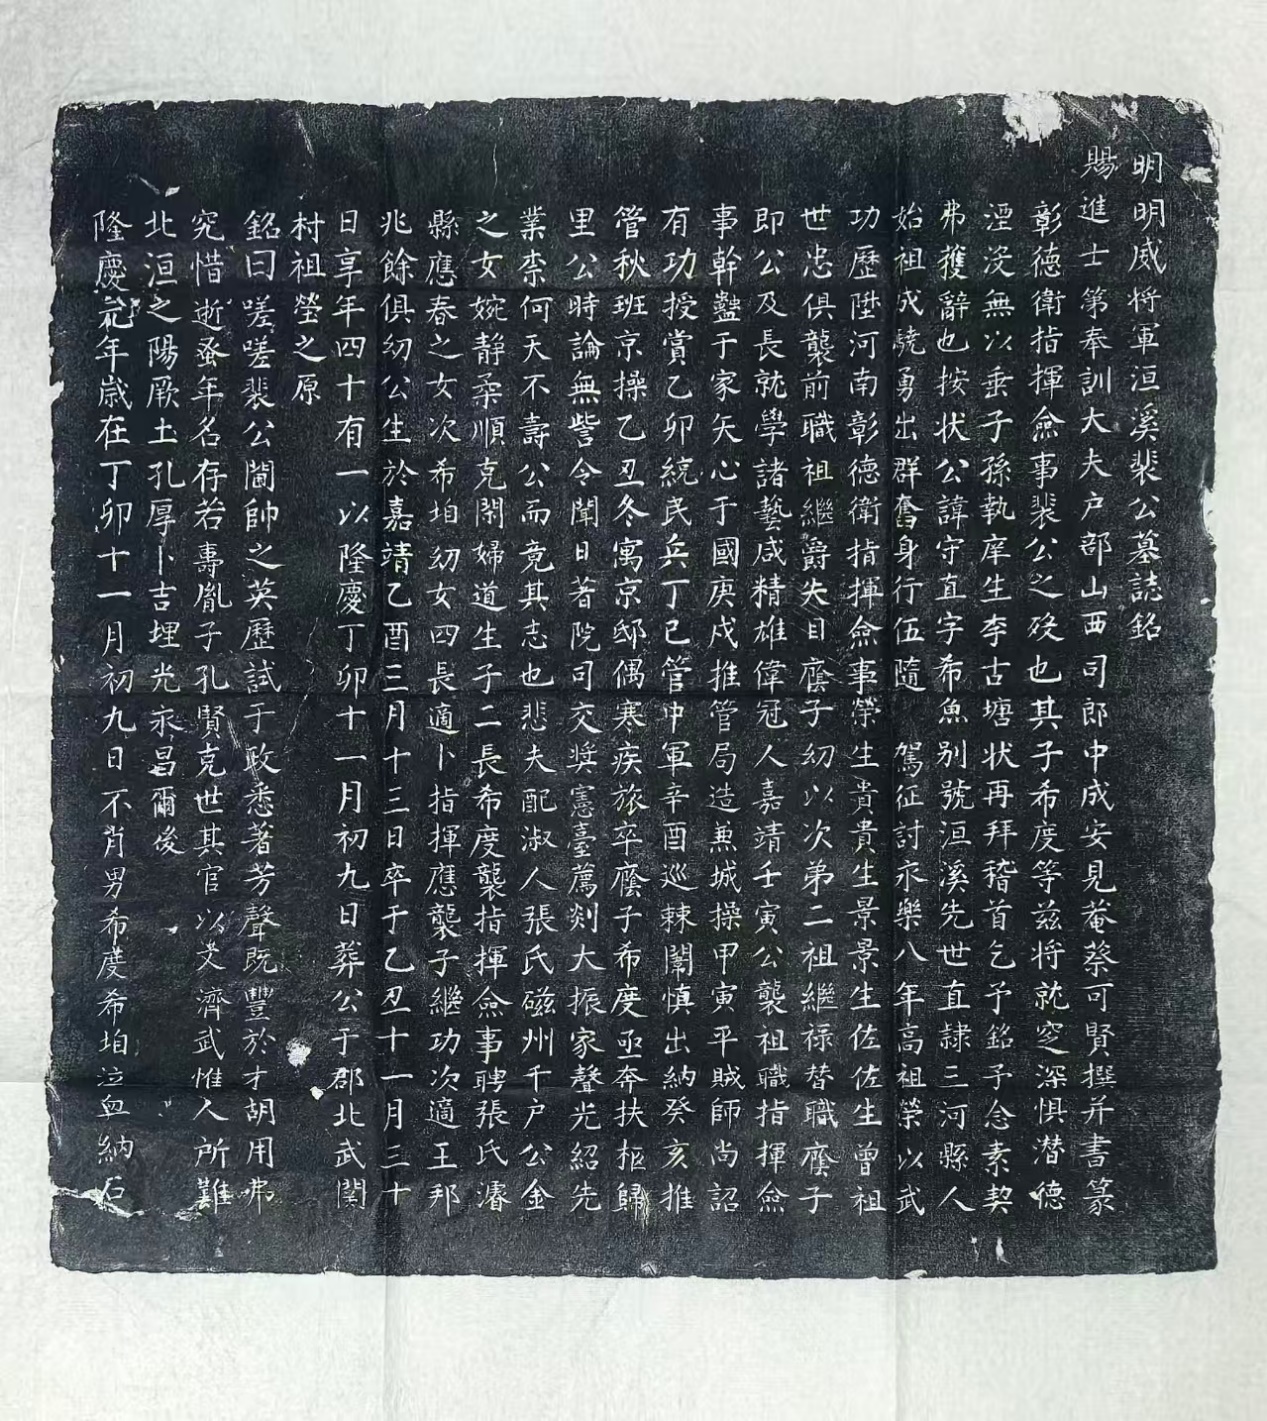 明明威将軍洹溪裴公墓誌銘
賜進士第奉訓大夫户部山西司郎中成安見菴蔡可賢撰并書篆
彰德衛指揮僉事裴公之殁也其子希度等兹将就窆深惧潜德
湮没無以垂子孫執庠生李古塘状再拜稽首乞予銘予念素契
弗獲辭也按状公諱守直字希魚别號洹溪先世直隷三河縣人
始祖成驍勇出群奮身行伍隨 駕征討永樂八年高祖榮以武
功歷陞河南彰德衛指揮僉事榮生貴貴生景景生佐佐生曾祖
世忠俱襲前職祖繼爵失目廕子幼以次弟二祖繼禄替職廕子
即公及長就學諸藝咸精雄偉冠人嘉靖壬寅公襲祖職指揮僉
事幹蠱于家矢心于國庚戌推管局造兼城操甲寅平賊師尚詔
有功授賞乙卯統民兵丁巳管中軍辛酉巡棘闈慎出納癸亥推
管秋班京操乙丑冬寓京邸偶寒疾旅卒廕子希度亟奔扶柩歸
里公時論無訾令聞日著院司交奨憲臺薦剡大振家聲光紹先
業柰何天不壽公而竟其志也悲夫配淑人張氏磁州千户公金
之女婉静柔順克閑婦道生子二長希度襲指揮僉事聘張氏濬
縣應春之女次希垍幼女四長適卜指揮應襲子繼功次適王邦
兆餘俱幼公生於嘉靖乙酉三月十三日卒于乙丑十一月三十
日享年四十有一以隆慶丁卯十一月初九日葬公于郡北武闌
村祖塋之原
銘曰嗟嗟裴公閫帥之英歷試于政悉著芳聲既豐於才胡用弗
究惜逝蚤年名存若壽胤子孔賢克世其官以文濟武惟人所難
北洹之陽厥土孔厚卜吉埋光永昌爾後
隆慶元年歲在丁卯十一月初九日不肖男希度希垍泣血納石